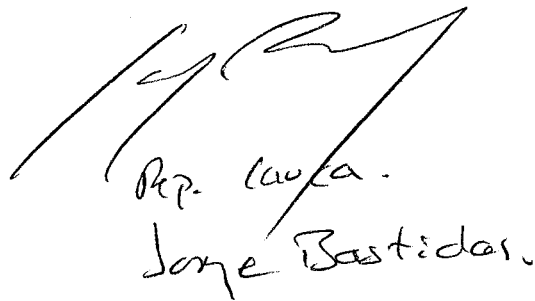 Rep. Cauca.
Jorge Bastidas.